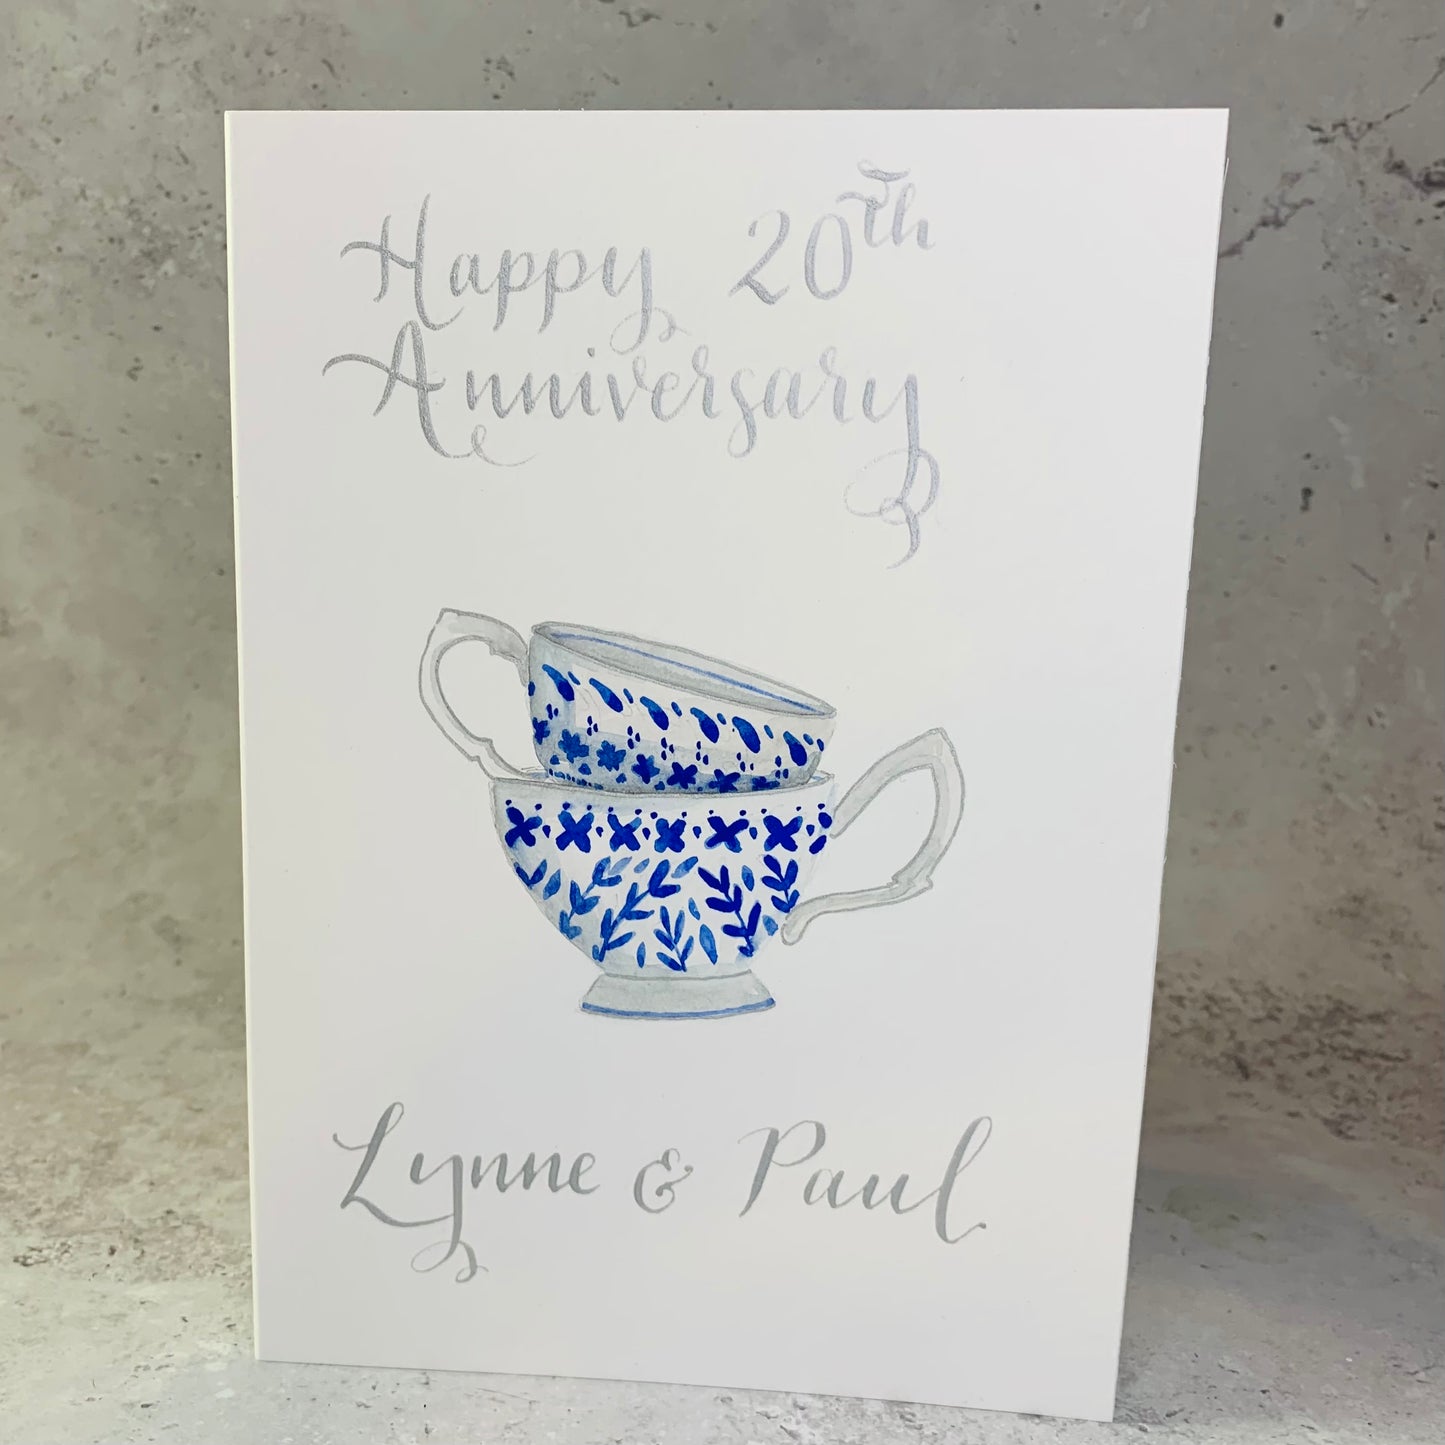 Happy 20th
Anniversary
Lynne & Paul